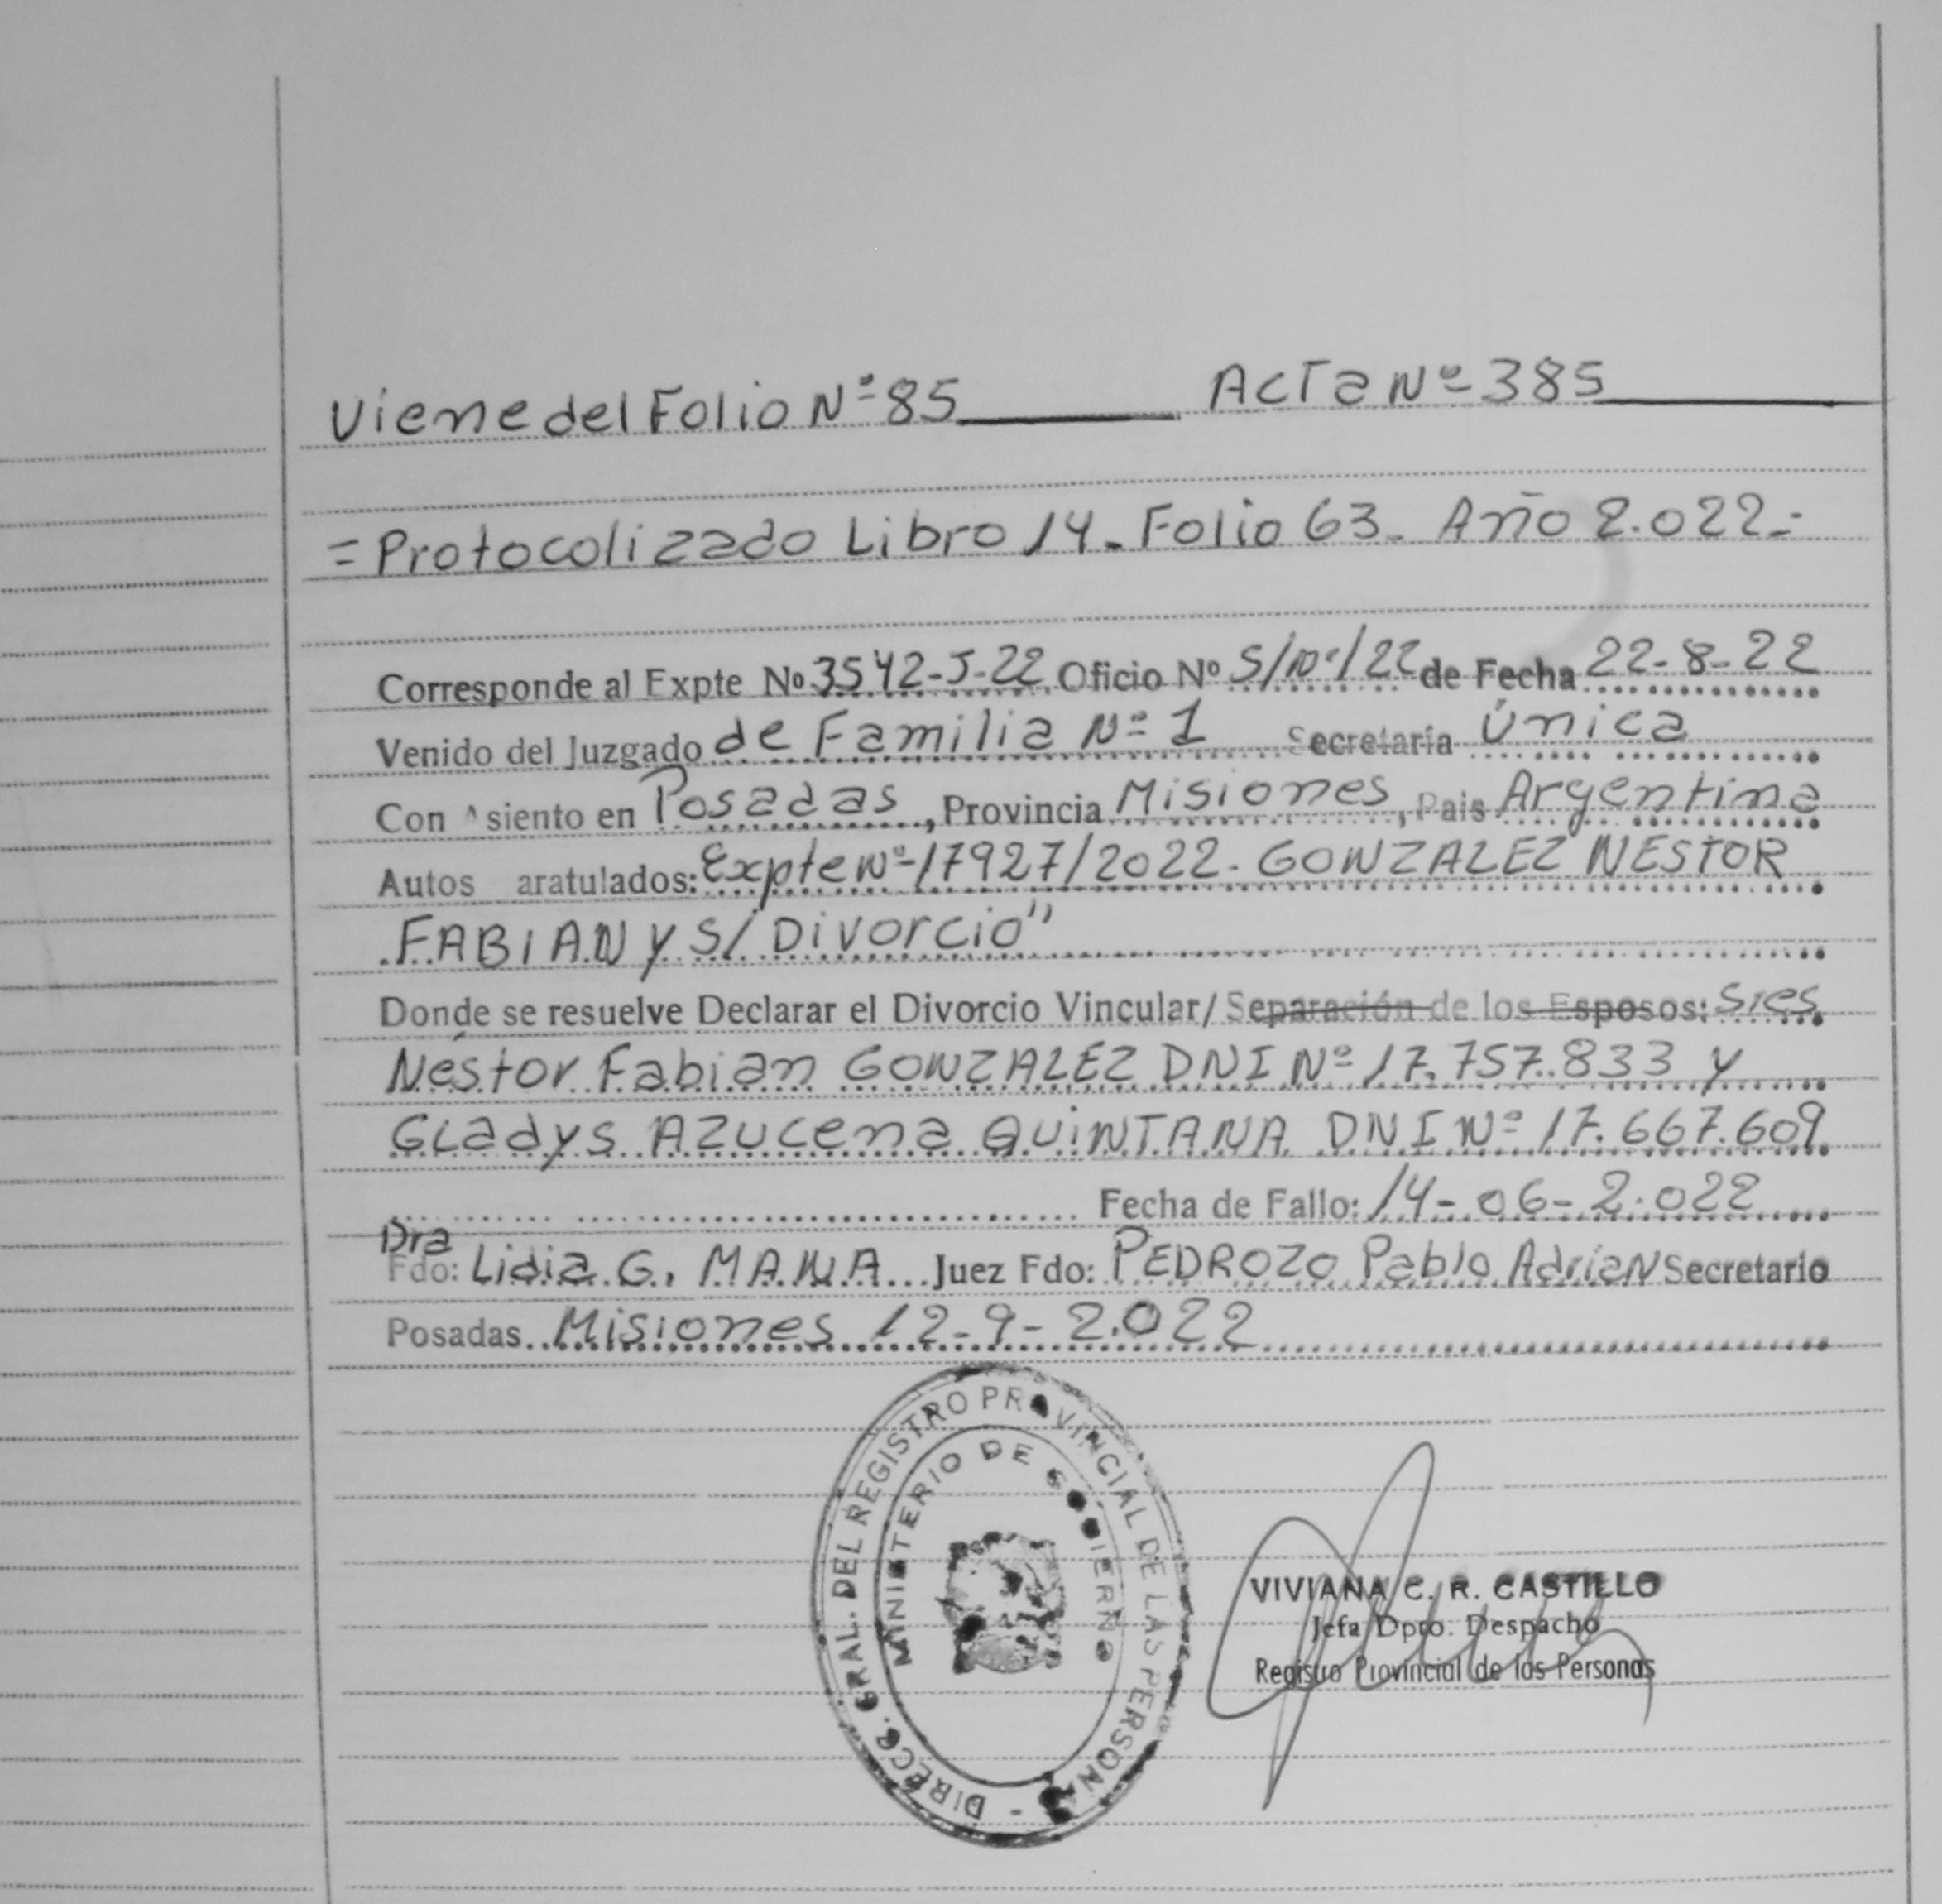 Viene del Folio Nº 85 Acta Nº 385
= Protocolizado Libro 14. Folio 63. Año 2.022.-
Corresponde al Expte Nº 3542-J-22 Oficio Nº S/Nº/22 de Fecha 22-8-22
Venido del Juzgado de Familia Nº 1 Secretaría Única
Con Asiento en Posadas, Provincia Misiones, Pais Argentina
Autos aratulados: Expte Nº 17927/2022. GONZALEZ NESTOR
FABIAN y S/ Divorcio"
Donde se resuelve Declarar el Divorcio Vincular/ Separación de los Esposos: Sres
Nestor Fabian GONZALEZ DNI Nº 17.757.833 y
Gladys Azucena QUINTANA DNI Nº 17.667.609
Fecha de Fallo: 14-06-2.022
Dra
Fdo: Lidia G. MANA Juez Fdo: PEDROZO Pablo Adrian Secretario
Posadas Misiones 12-9-2.022
DIRECC. GRAL. DEL REGISTRO PROVINCIAL DE LAS PERSONAS -
MINISTERIO DE GOBIERNO
VIVIANA C. R. CASTILLO
Jefa Dpto. Despacho
Registro Provincial de las Personas